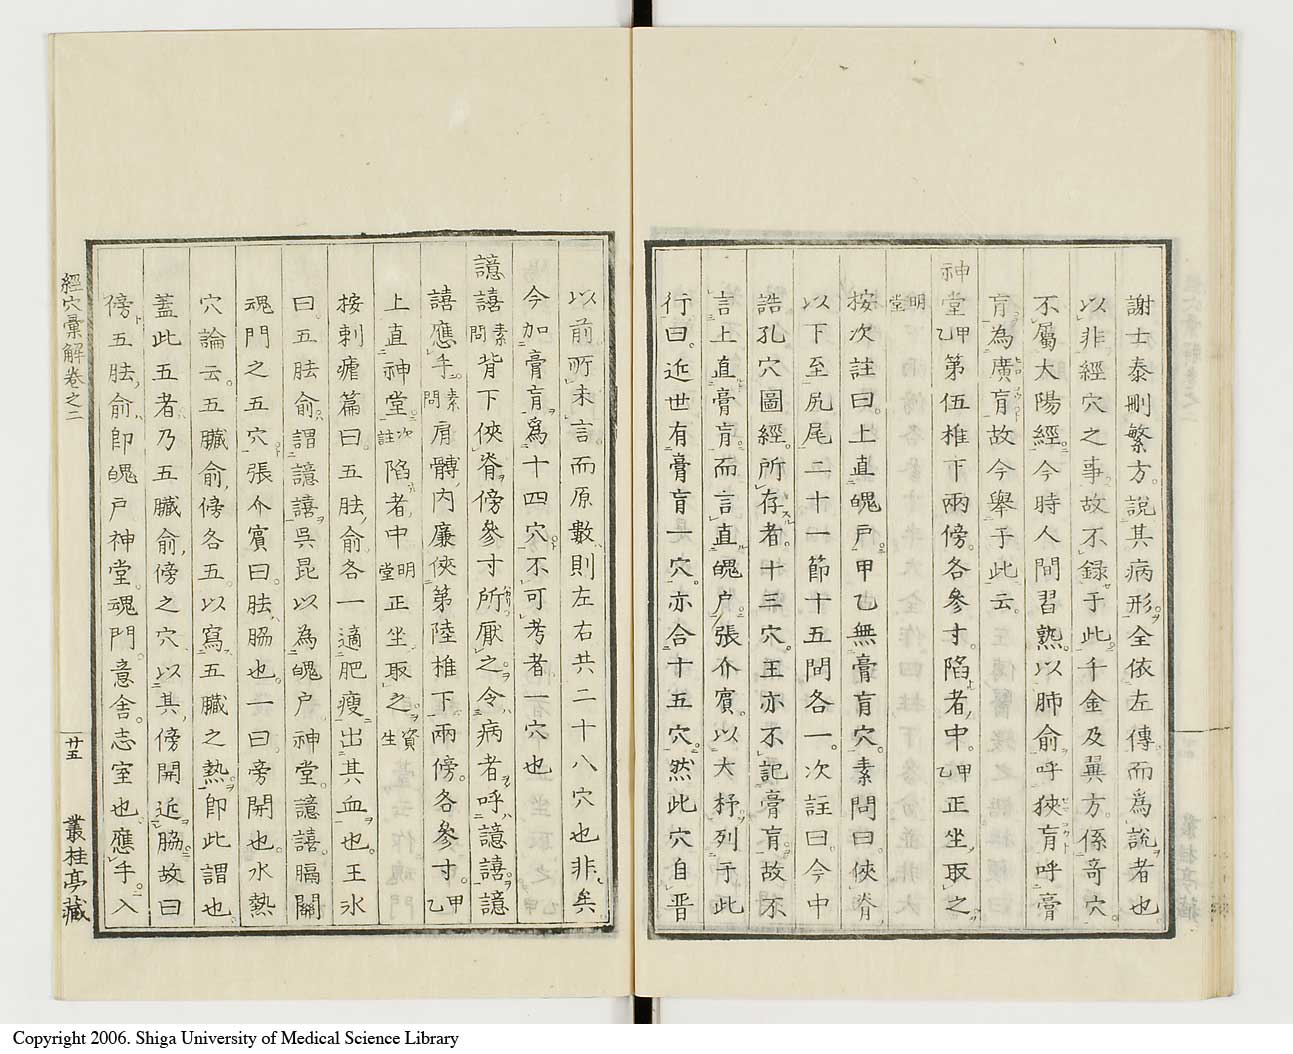 謝士泰刪繁方說其病形全依左傳而爲說者也
以非經穴之事故不録于此千金及翼方係奇穴
不屬太陽經今時人間習熟以肺俞呼狹肓呼膏
肓為廣肓故今舉于此云
神堂甲乙第伍椎下兩傍各參寸陷者中甲乙正坐取之
明堂
按次註曰上直魄戶甲乙無膏肓穴素問曰俠脊
以下至尻尾二十一節十五間各一次註曰今中
誥孔穴圖經所存者十三穴王亦不記膏肓故不
言上直膏肓而言直魄戶張介賓以大杼列于此
行曰近世有膏肓一穴亦合十五穴然此穴自晋
以前所未言而原數則左右共二十八穴也非矣
今加膏肓爲十四穴不可考者一穴也
譩譆素問背下俠脊傍參寸所厭之令病者呼譩譆譩
譆應手素問肩髆內廉俠第陸椎下兩傍各參寸甲乙
上直神堂次註陷者中明堂正坐取之資生
按刺瘧篇曰五胠俞各一適肥瘦出其血也王氷
曰五胠俞謂譩譆呉昆以為魄戶神堂譩譆膈關
魂門之五穴張介賓曰胠脇也一曰旁開也水熱
穴論云五臓俞傍各五以寫五臓之熱即此謂也
蓋此五者乃五臓俞傍之穴以其傍開近脇故曰
傍五胠俞即魄戶神堂魂門意舍志室也應手入
經穴彙解卷之二
廿五
叢桂亭藏
Copyright 2006. Shiga University of Medical Science Library